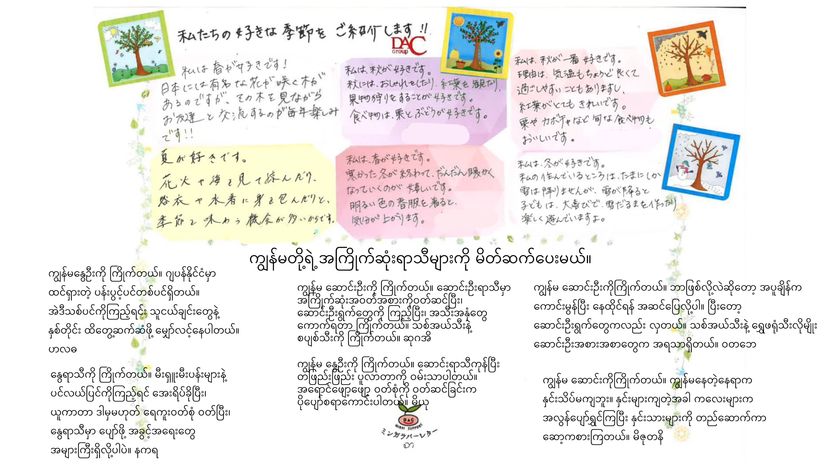 私たちの好きな季節をご紹介します!!
DAC
Group
私は春が好きです!
日本には有名な花が咲く木が
あるのですが、その木を見ながら
お友達と交流するのが毎年楽しみ
です!!
私は、秋が好きです。
秋には、おしゃれをしたり、紅葉を観たり、
果物狩りをすることが好きです。
食べ物は、栗とぶどうが好きです。
私は、秋が一番好きです。
理由は、気温もちょうど良くて
過ごしやすいこともありますし、
紅葉がとてもきれいです。
栗やカボチャなど旬な食べ物も
おいしいです。
夏が好きです。
花火や海を見て涼んだり、
浴衣や水着に身を包んだりと、
季節を味わう機会が多いからです。
私は春が好きです。
寒かった冬が終わって、だんだん暖かく
なっていくのが嬉しいです。
明るい色の春服を着ると、
気分が上がります。
私は、冬が好きです。
私の住んでいるところは、たまにしか
雪は降りませんが、雪が降ると
子どもは、大喜びで、雪だるまを作ったり
楽しく遊んでいますよ。
ကျွန်မတို့ရဲ့အကြိုက်ဆုံးရာသီများကို မိတ်ဆက်ပေးမယ်။
ကျွန်မနွေဦးကို ကြိုက်တယ်။ ဂျပန်နိုင်ငံမှာ
ထင်ရှားတဲ့ ပန်းပွင့်ပင်တစ်ပင်ရှိတယ်။
အဲဒီသစ်ပင်ကိုကြည့်ရင်း သူငယ်ချင်းတွေနဲ့
နှစ်တိုင်း ထိတွေ့ဆက်ဆံဖို့ မျှော်လင့်နေပါတယ်။
ဟလဓ
နွေရာသီကို ကြိုက်တယ်။ မီးရှူးမီးပန်းများနဲ့
ပင်လယ်ပြင်ကိုကြည့်ရင် အေးရိပ်ခိုပြီး၊
ယူကာတာ ဒါမှမဟုတ် ရေကူးဝတ်စုံ ဝတ်ပြီး၊
နွေရာသီမှာ ပျော်ဖို့ အခွင့်အရေးတွေ
အများကြီးရှိလို့ပါပဲ။ နကရ
ကျွန်မ ဆောင်းဦးကို ကြိုက်တယ်။ ဆောင်းဦးရာသီမှာ
အကြိုက်ဆုံးအဝတ်အစားကိုဝတ်ဆင်ပြီး၊
ဆောင်းဦးရွက်တွေကို ကြည့်ပြီး အသီးအနှံတွေ
ကောက်ရတာ ကြိုက်တယ်။ သစ်အယ်သီးနဲ့
စပျစ်သီးကို ကြိုက်တယ်။ ဆုဂအိ
ကျွန်မ နွေဦးကို ကြိုက်တယ်။ ဆောင်းရာသီကုန်ပြီး
တဖြည်းဖြည်း ပူလာတာကို ဝမ်းသာပါတယ်။
အရောင်ဖျော့ဖျော့ ဝတ်စုံကို ဝတ်ဆင်ခြင်းက
ပိုပျော်စရာကောင်းပါတယ်။ မိယု
ကျွန်မ ဆောင်းဦးကိုကြိုက်တယ်။ ဘာဖြစ်လို့လဲဆိုတော့ အပူချိန်က
ကောင်းမွန်ပြီး နေထိုင်ရန် အဆင်ပြေလို့ပါ။ ပြီးတော့
ဆောင်းဦးရွက်တွေကလည်း လှတယ်။ သစ်အယ်သီးနဲ့ ရွှေဖရုံသီးလိုမျိုး
ဆောင်းဦးအစားအစာတွေက အရသာရှိတယ်။ ဝတာဘေ
ကျွန်မ ဆောင်းကိုကြိုက်တယ်။ ကျွန်မနေတဲ့နေရာက
နှင်းသိပ်မကျဘူး။ နှင်းများကျတဲ့အခါ ကလေးများက
အလွန်ပျော်ရွှင်ကြပြီး နှင်းသားများကို တည်ဆောက်ကာ
ဆော့ကစားကြတယ်။ မိဇုတနိ
ミンガラバーレター